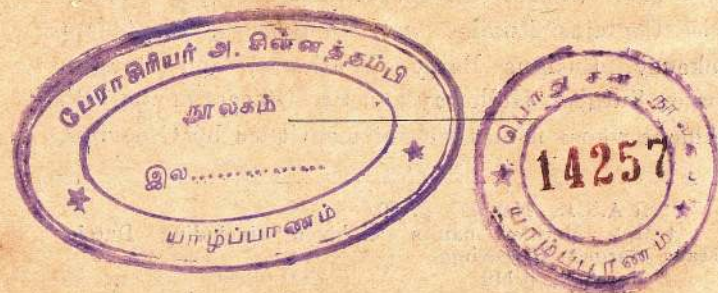 பேராசிரியர் அ. சின்னத்தம்பி
நூலகம்
இல..............
யாழ்ப்பாணம்
பொது சன நூலகம்
14257
யாழ்ப்பாணம்